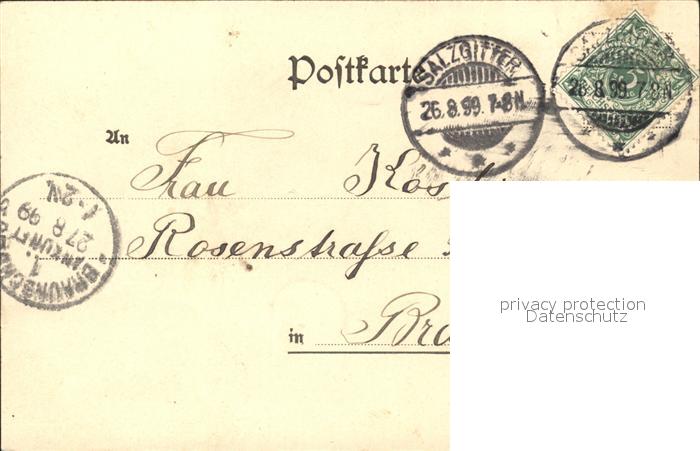 Postkarte
SALZGITTER
26.8.99.7-8N
SALZGITTER
26.8.99.7-8N
An
Frau
Rosenstraße
in
BRAUNSCHWEIG
1.
ANKUNFT
27 8 99
1-2V.
privacy protection
Datenschutz